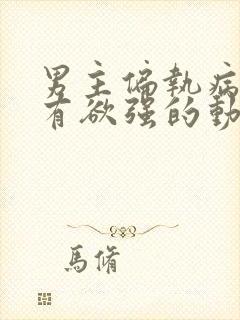 男主偏執病
有欲强的動
馬脩